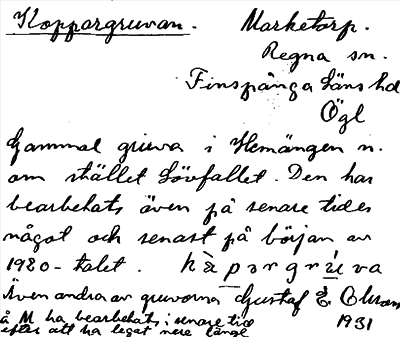 Koppargruvan. Marketorp.
Regna sn.
Finspånga läns hd
Ögl
Gammal gruva i Hemängen n.
om stället Lövfallet. Den har
bearbehats även på senare tides
något och senast på början av
1920-talet. kàpərgrú̀va
Även andra av gruvorna Gustaf E. Olsson
å M ha bearbehats i senare tid 1931
efter att ha legat nere länge